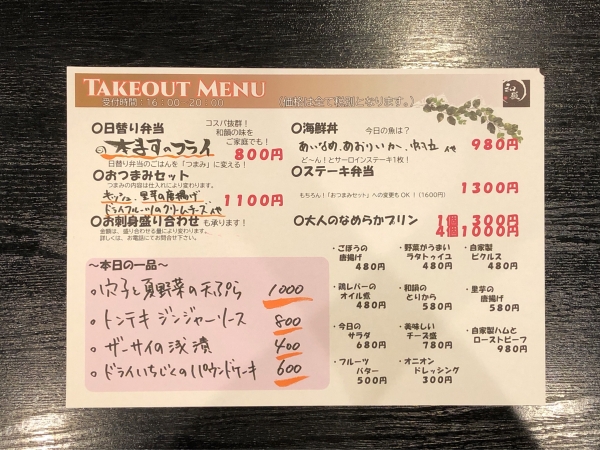 TAKEOUT MENU
受付時間:16:00~20:00
(価格は全て税別となります。)
和韻
〇日替り弁当
コスパ抜群!
和韻の味を
ご家庭でも!
本ますのフライ
800円
日替り弁当のごはんを「つまみ」に変える!
〇おつまみセット
つまみの内容は仕入れにより変わります。
キッシュ、里芋の唐揚げ
ドライフルーツのクリームチーズ、他
1100円
〇お刺身盛り合わせも承ります!
金額は、盛り合わせる量により変わります。
詳しくは、お電話にてお問合せ下さい。
〇海鮮丼
今日の魚は?
あいなめ、あおりいか、帆立 他
980円
ど~ん!とサーロインステーキ1枚!
〇ステーキ弁当
1300円
もちろん!「おつまみセット」への変更もOK!(1600円)
〇大人のなめらかプリン
1個 300円
4個1000円
~本日の一品~
・穴子と夏野菜の天ぷら 1000
・トンテキ ジンジャーソース 800
・ザーサイの浅漬 400
・ドライいちじくのパウンドケーキ 600
・ごぼうの
唐揚げ
480円
・野菜がうまい
ラタトゥイユ
480円
・自家製
ピクルス
480円
・鶏レバーの
オイル煮
480円
・和韻の
とりから
580円
・里芋の
唐揚げ
580円
・今日の
サラダ
680円
・美味しい
チーズ盛
780円
・自家製ハムと
ローストビーフ
980円
・フルーツ
バター
500円
・オニオン
ドレッシング
300円